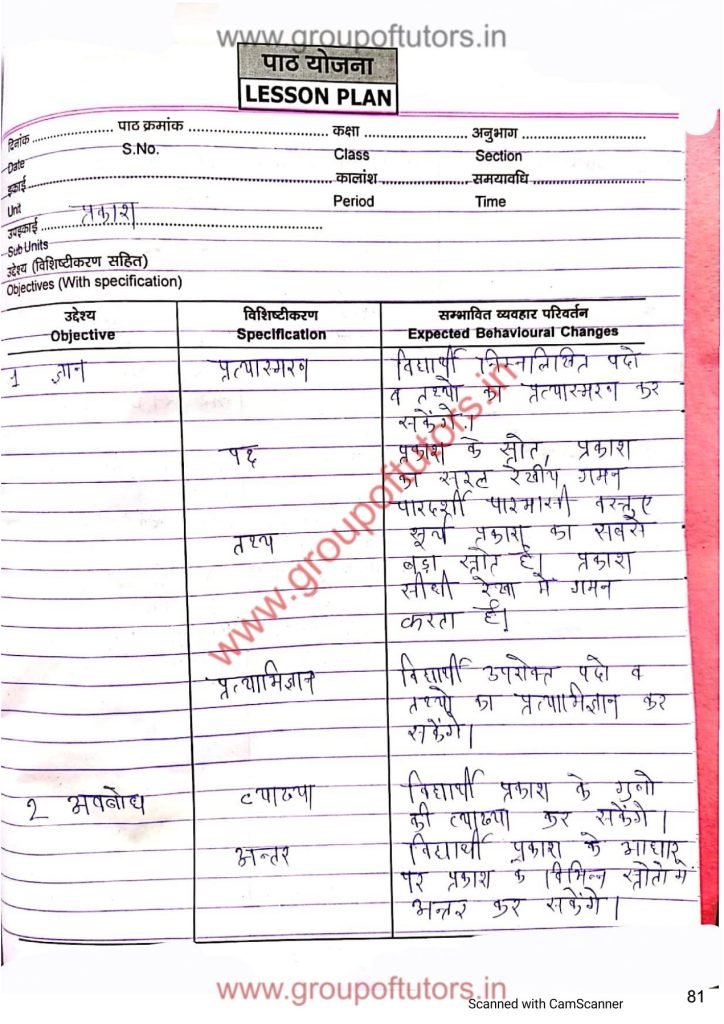 www.groupoftutors.in
पाठ योजना
LESSON PLAN
दिनांक ........ पाठ क्रमांक ........ कक्षा ........ अनुभाग ........
Date S.No. Class Section
इकाई ........ कालांश ........ समयावधि ........
Unit Period Time
प्रकाश
उपइकाई ........
Sub Units
उद्देश्य (विशिष्टीकरण सहित)
Objectives (With specification)
उद्देश्य विशिष्टीकरण सम्भावित व्यवहार परिवर्तन
Objective Specification Expected Behavioural Changes
1 ज्ञान प्रत्यास्मरण विद्यार्थी निम्नलिखित पदो
व तथ्यो का प्रत्यास्मरन कर
सकेंगे।
पद प्रकाश के स्रोत, प्रकाश
का सरल रेखीय गमन
पारदर्शी पारभासी वस्तुए
तथ्य सूर्य प्रकाश का सबसे
बड़ा स्त्रोत है। प्रकाश
सीधी रेखा में गमन
करता है।
प्रत्याभिज्ञान विद्यार्थी उपरोक्त पदो व
तथ्यो का प्रत्याभिज्ञान कर
सकेंगे।
2 अवबोध व्याख्या विद्यार्थी प्रकाश के गुनो
की व्याख्या कर सकेंगे।
अन्तर विद्यार्थी प्रकाश के आधार
पर प्रकाश के विभिन्न स्त्रोतो में
अन्तर कर सकेंगे।
www.groupoftutors.in
www.groupoftutors.in
Scanned with CamScanner
81